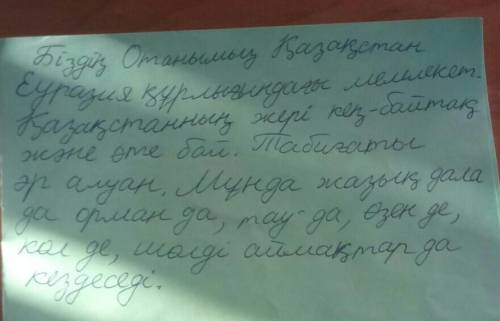 Біздің Отанымыз Қазақстан
Еуразия құрлығындағы мемлекет.
Қазақстанның жері кең-байтақ
және өте бай. Табиғаты
әр алуан. Мұнда жазық дала
да орман да, тау да, өзен де,
көл де, шөлді аймақтар да
кездеседі.